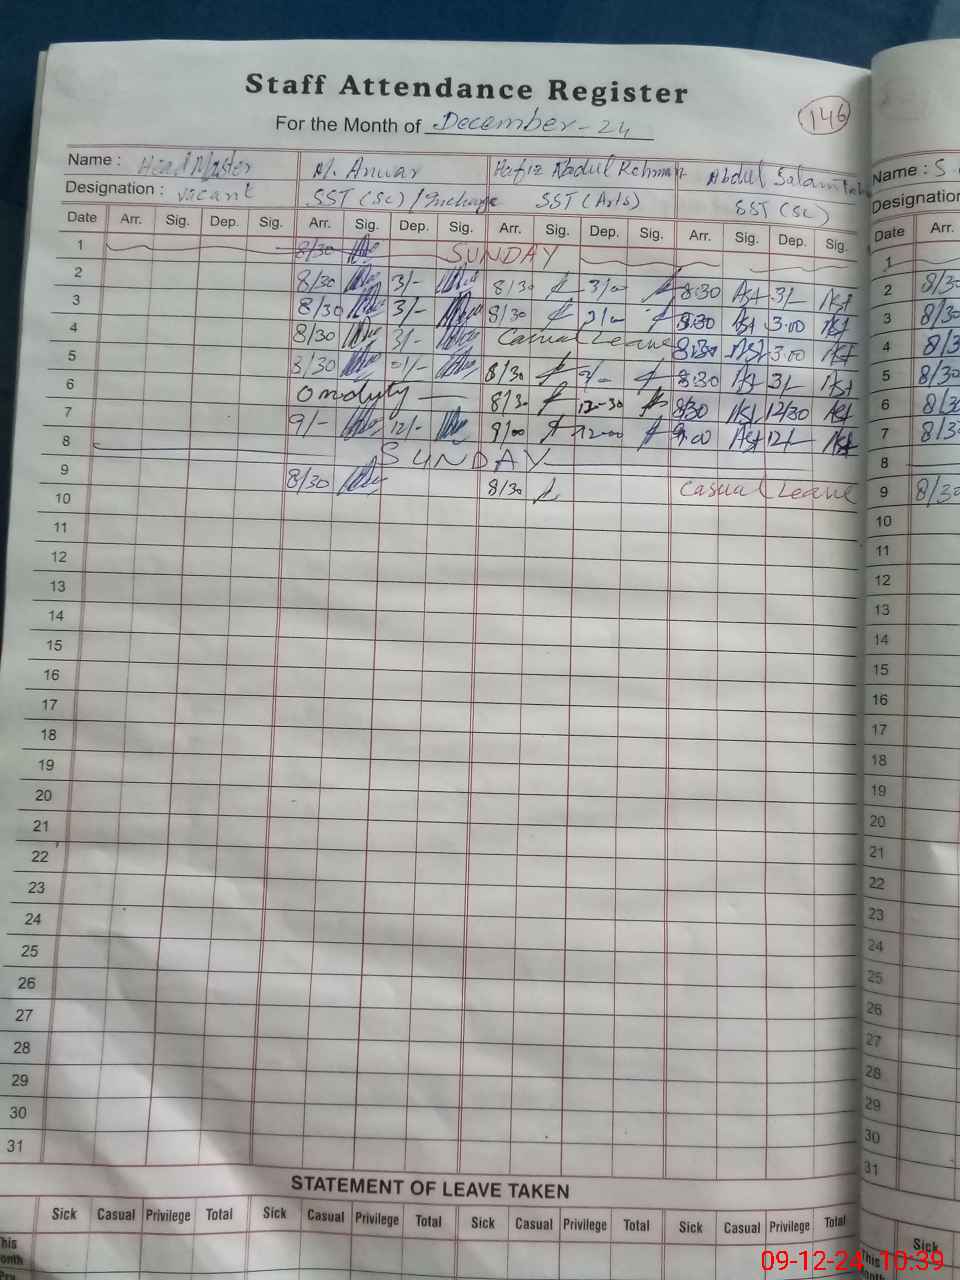 Staff Attendance Register
For the Month of December - 24
146
Name : Head Master M. Anwar Hafiz Abdul Rehman Abdul Salam
Designation : vacant SST (Sc) / Incharge SST (Arts) SST (Sc)
Date Arr. Sig. Dep. Sig. Arr. Sig. Dep. Sig. Arr. Sig. Dep. Sig. Arr. Sig. Dep. Sig.
1 8/30 SUNDAY
2 8/30 3/- 8/30 3/00 8:30 3/-
3 8/30 3/- 8/30 3/00 8:30 3:00
4 8/30 3/- Casual Leave 8:30 3:00
5 8/30 8/30 3/- 8:30 3/-
6 On duty 8/30 12-30 8/30 12/30
7 9/- 12/- 9/00 12-00 9:00 12/-
8 SUNDAY
9 8/30 8/30 Casual Leave
10
11
12
13
14
15
16
17
18
19
20
21
22
23
24
25
26
27
28
29
30
31
STATEMENT OF LEAVE TAKEN
Sick Casual Privilege Total Sick Casual Privilege Total Sick Casual Privilege Total Sick Casual Privilege Total
This
Month
Name : S
Designation
Date Arr.
1
2 8/30
3 8/30
4 8/3
5 8/30
6 8/30
7 8/30
8
9 8/30
10
11
12
13
14
15
16
17
18
19
20
21
22
23
24
25
26
27
28
29
30
31
Sick
This
Month
09-12-24 10:39